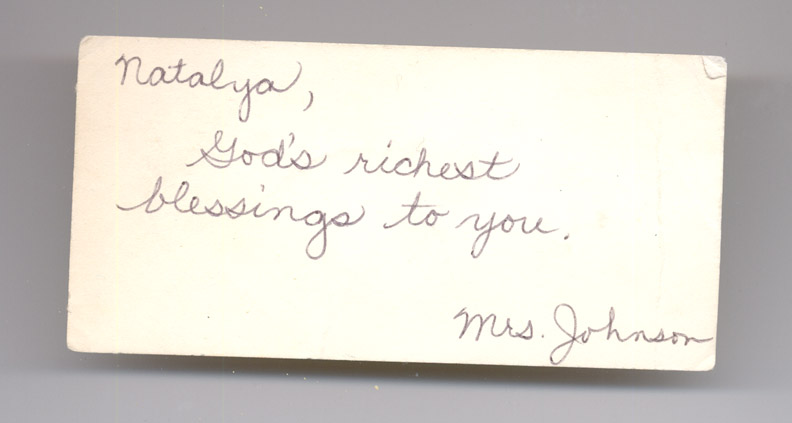 Natalya,
God's richest
blessings to you.
Mrs. Johnson